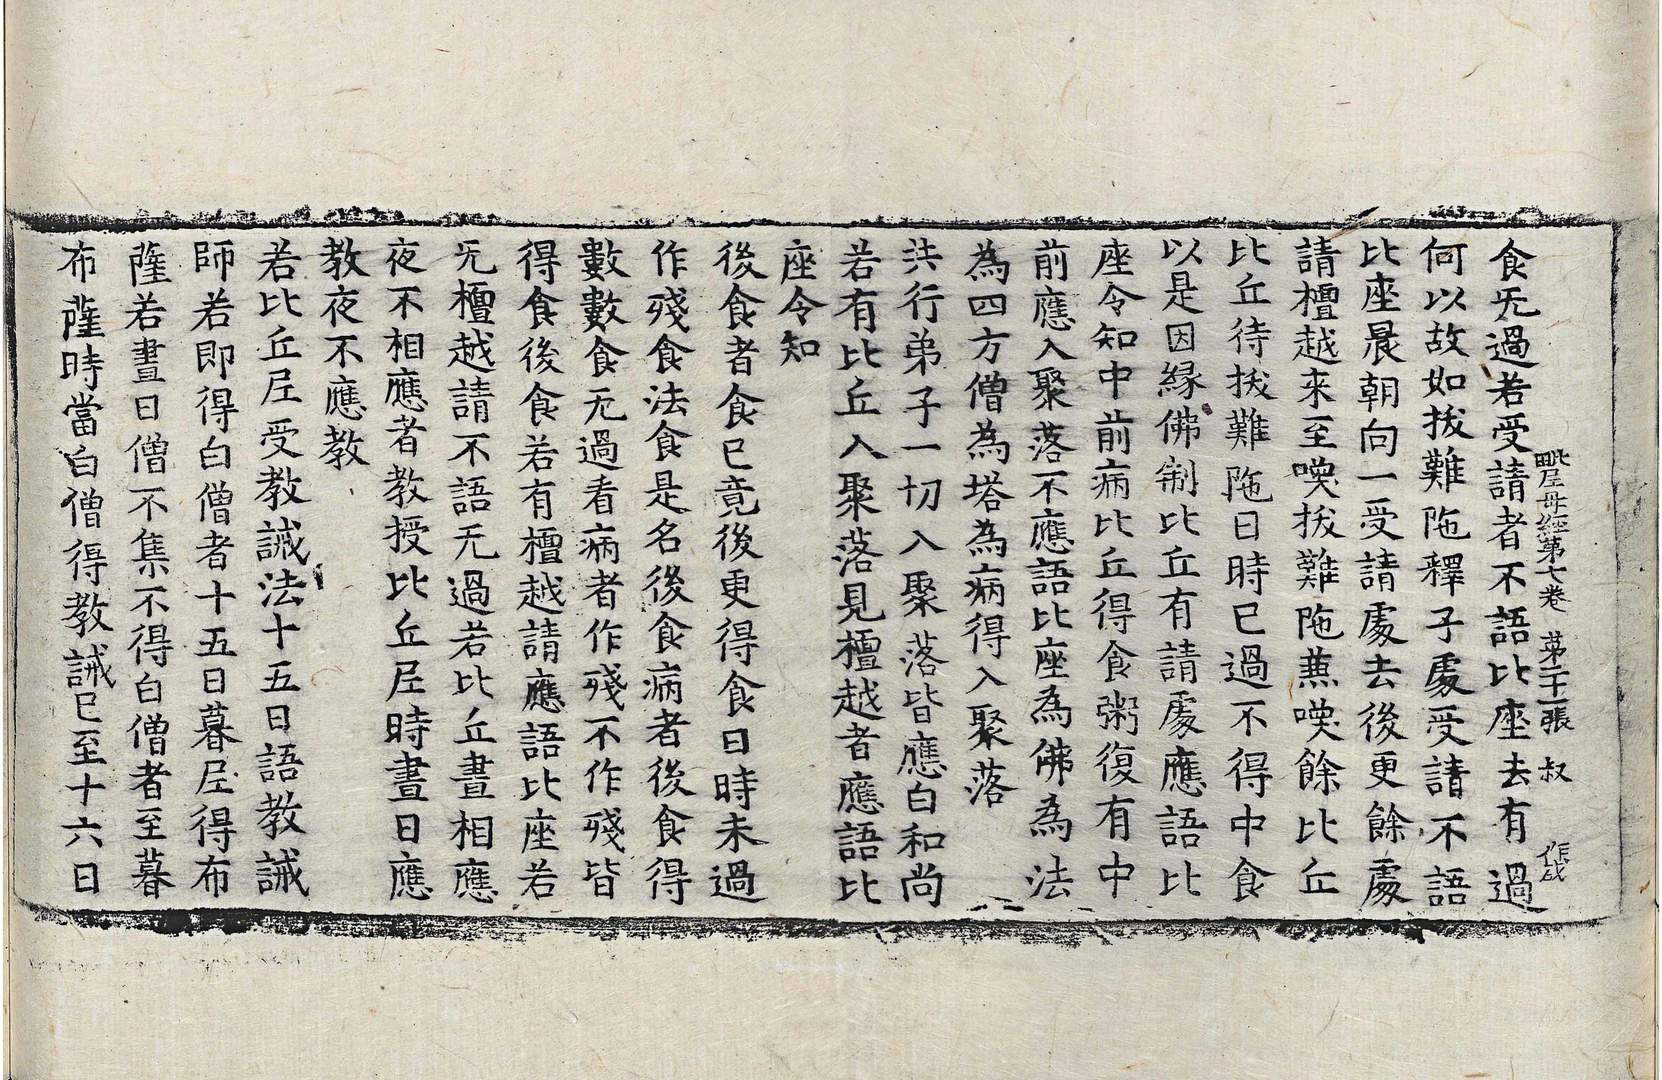 毗尼母經第七卷 第二十一張 叔
食无過若受請者不語比座去有過
何以故如拔難陁釋子處受請不語
比座晨朝向一受請處去後更餘處
請檀越來至㗇拔難陁蕉㗇餘比丘
比丘待拔難陁日時已過不得中食
以是因緣佛制比丘有請處應語比
座令知中前病比丘得食粥復有中
前應入聚落不應語比座為佛為法
為四方僧為塔為病得入聚落
共行弟子一切入聚落皆應白和尚
若有比丘入聚落見檀越者應語比
座令知
後食者食已竟後更得食日時未過
作殘食法食是名後食病者後食得
數數食无過看病者作殘不作殘皆
得食後食若有檀越請應語比座若
无檀越請不語无過若比丘晝相應
夜不相應者教授比丘尼時晝日應
教夜不應教
若比丘尼受教誡法十五日語教誡
師若即得白僧者十五日暮尼得布
薩若晝日僧不集不得白僧者至暮
布薩時當白僧得教誡已至十六日